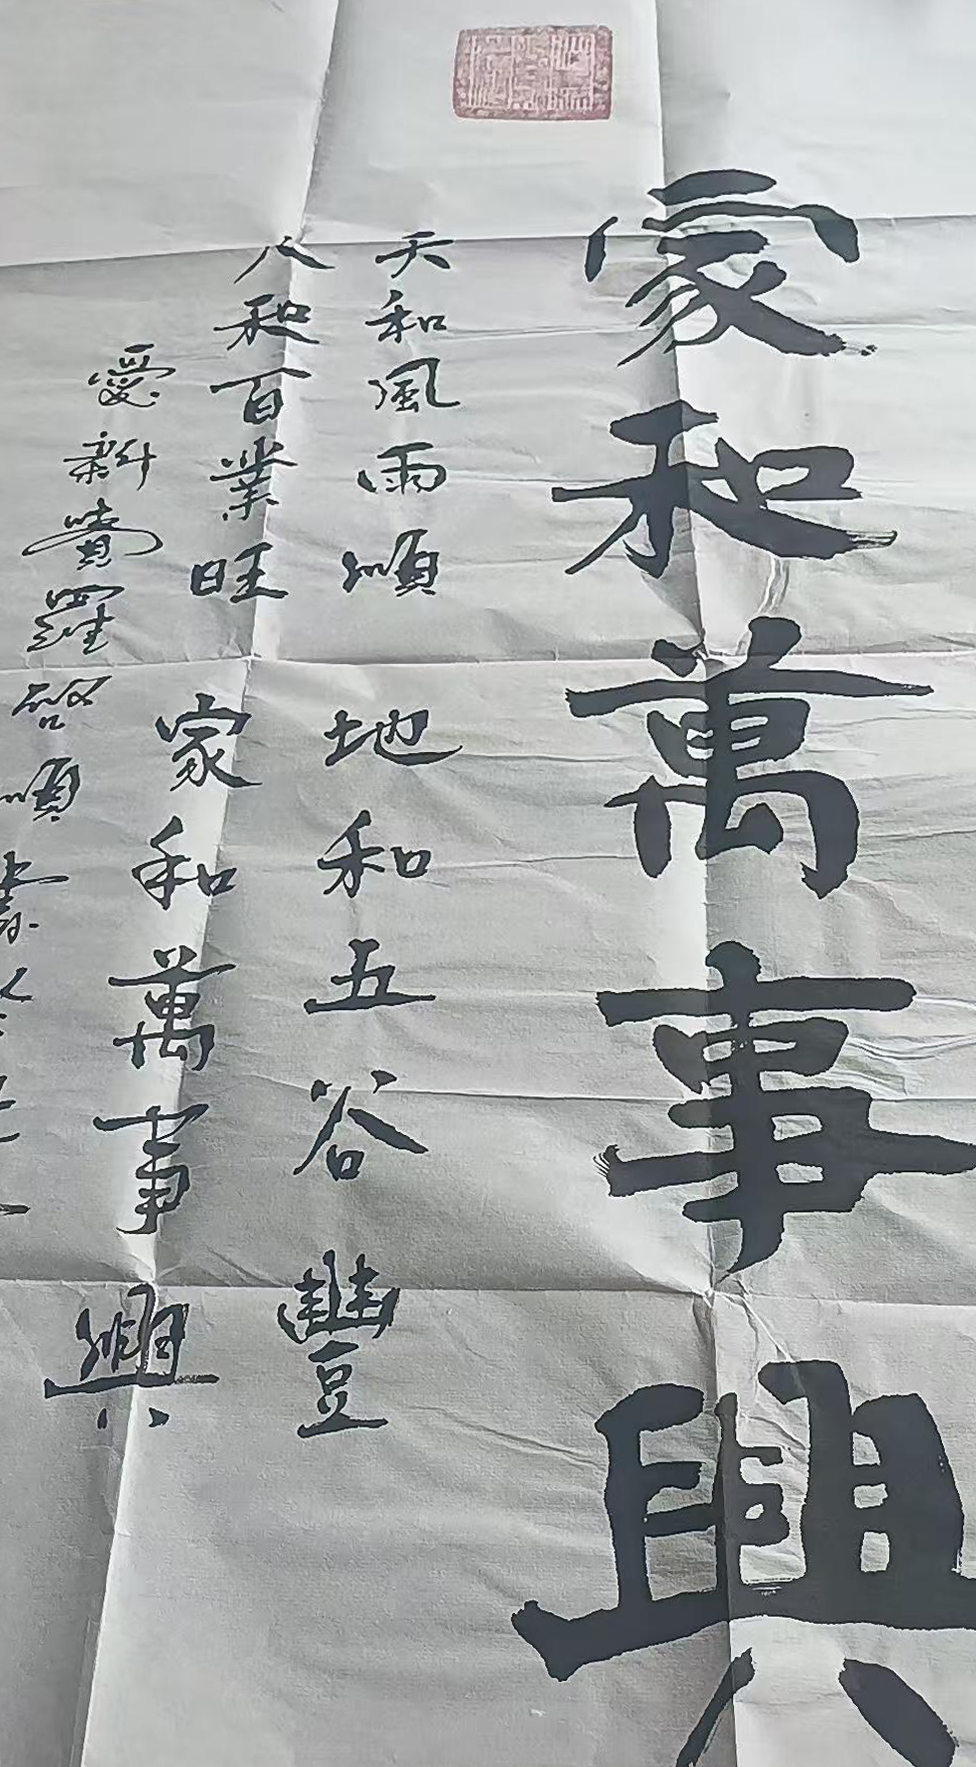 家和萬事興
天和風雨順 地和五谷豐
人和百業旺 家和萬事興
愛新覺羅啓順 書